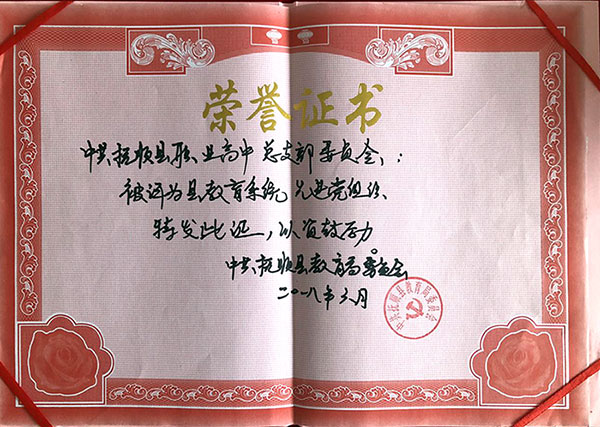 荣誉证书
中共抚顺县职业高中总支部委员会：
被评为县教育系统先进党组织
特发此证，以资鼓励
中共抚顺县教育局委员会
二〇一八年六月
中共抚顺县教育局委员会